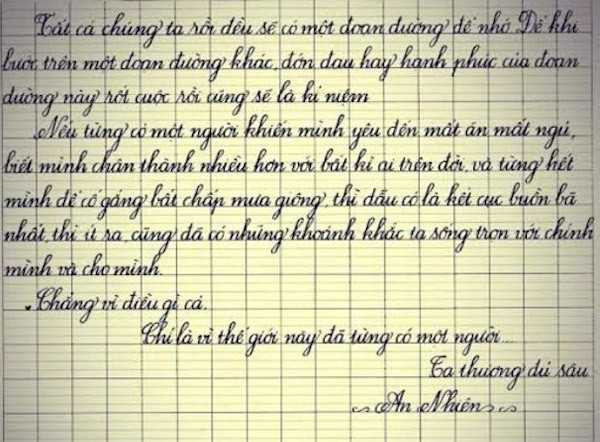 Tất cả chúng ta rồi đều sẽ có một đoạn đường để nhớ. Để khi
bước trên một đoạn đường khác, đớn đau hay hạnh phúc của đoạn
đường này rốt cuộc rồi cũng sẽ là kỉ niệm
Nếu từng có một người khiến mình yêu đến mất ăn mất ngủ,
biết mình chân thành nhiều hơn với bất kì ai trên đời, và từng hết
mình để cố gắng bất chấp mưa giông, thì dẫu có là kết cục buồn bã
nhất, thì ít ra, cũng đã có những khoảnh khắc ta sống trọn với chính
mình và cho mình.
Chẳng vì điều gì cả.
Chỉ là vì thế giới này đã từng có một người...
Ta thương đủ sâu
~ An Nhiên ~